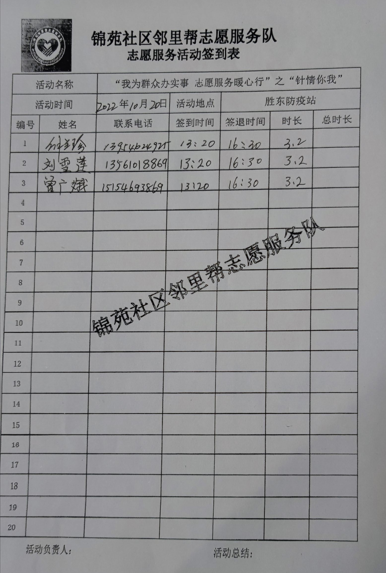 锦苑社区邻里帮志愿服务队
志愿服务活动签到表
活动名称 “我为群众办实事 志愿服务暖心行”之“针情你我”
活动时间 2022年10月20日 活动地点 胜东防疫站
编号 姓名 联系电话 签到时间 签退时间 时长 总时长
1 13:20 16:30 3.2
2 刘雪莲 13561018869 13:20 16:30 3.2
3 曾广娥 15154693869 13:20 16:30 3.2
4
5
6
7
8
9
10
11
12
13
14
15
16
17
18
19
20
锦苑社区邻里帮志愿服务队
活动负责人： 活动总结：